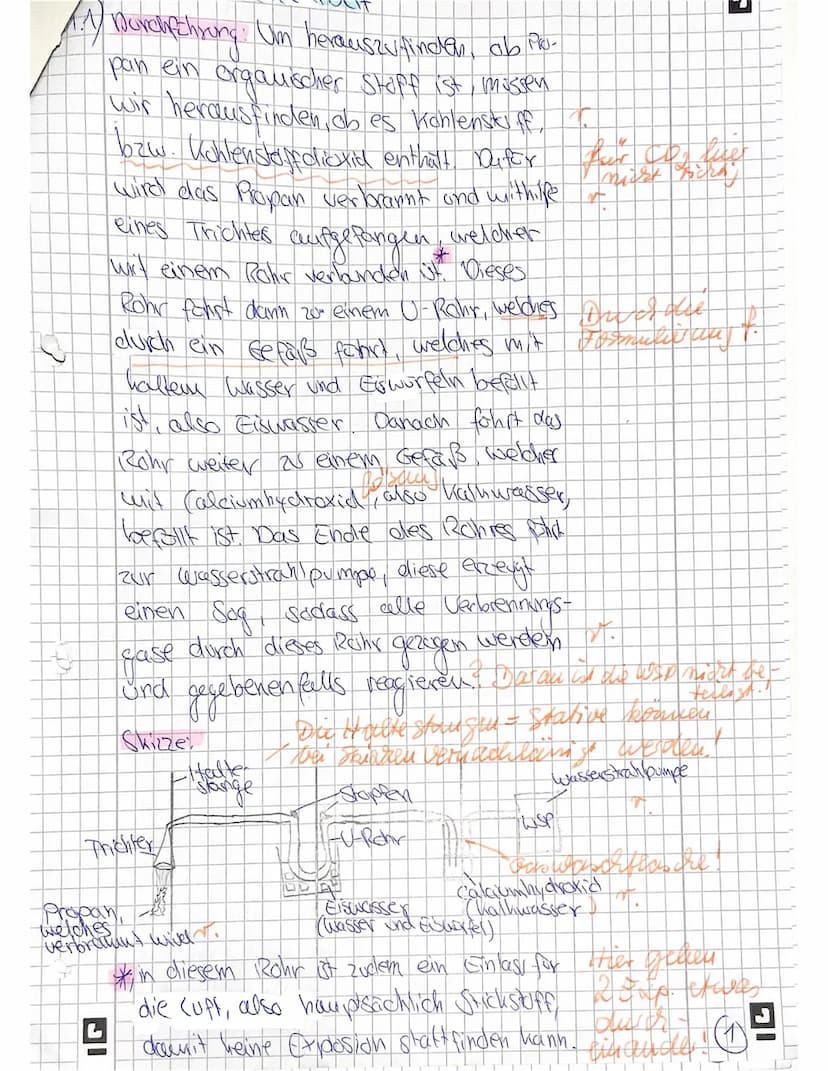 1.1) Durchführung: Um herauszufinden, ob Pro-
pan ein organischer Stoff ist, müssen
wir herausfinden, ob es Kohlenstoff, r.
bzw. Kohlenstoffdioxid enthält. Dafür für CO2 hier
nicht richtig
wird das Propan verbrannt und mithilfe r.
eines Trichtes aufgefangen, welcher
mit einem Rohr verbunden ist.* Dieses
Rohr führt dann zu einem U-Rohr, welches Durch die
durch ein Gefäß führt, welches mit Formulierung f.
kaltem Wasser und Eiswürfeln befüllt
ist, also Eiswasser. Danach führt das
Rohr weiter zu einem Gefäß, welcher
mit Calciumhydroxidlösung, also Kalkwasser,
befüllt ist. Das Ende des Rohres führt
zur Wasserstrahlpumpe, diese erzeugt
einen Sog, sodass alle Verbrennungs-
gase durch dieses Rohr gezogen werden r.
und gegebenenfalls reagieren.? Daran ist die WSP nicht be-
teiligt!
Die Haltestangen = Stative können
Skizze: bei Skizzen vernachlässigt werden!
Halte-
stange
Wasserstrahlpumpe
Stopfen
r.
WSP
Trichter
U-Rohr
Gaswaschflasche!
Calciumhydroxid
(Kalkwasser) r.
Eiswasser
(Wasser und Eiswürfel)
Propan,
welches
verbrannt wird r.
* in diesem Rohr ist zudem ein Einlass für Hier gehen
die Luft, also hauptsächlich Stickstoff, 2 Exp. etwas
durch-
damit keine Explosion stattfinden kann. einander! 1